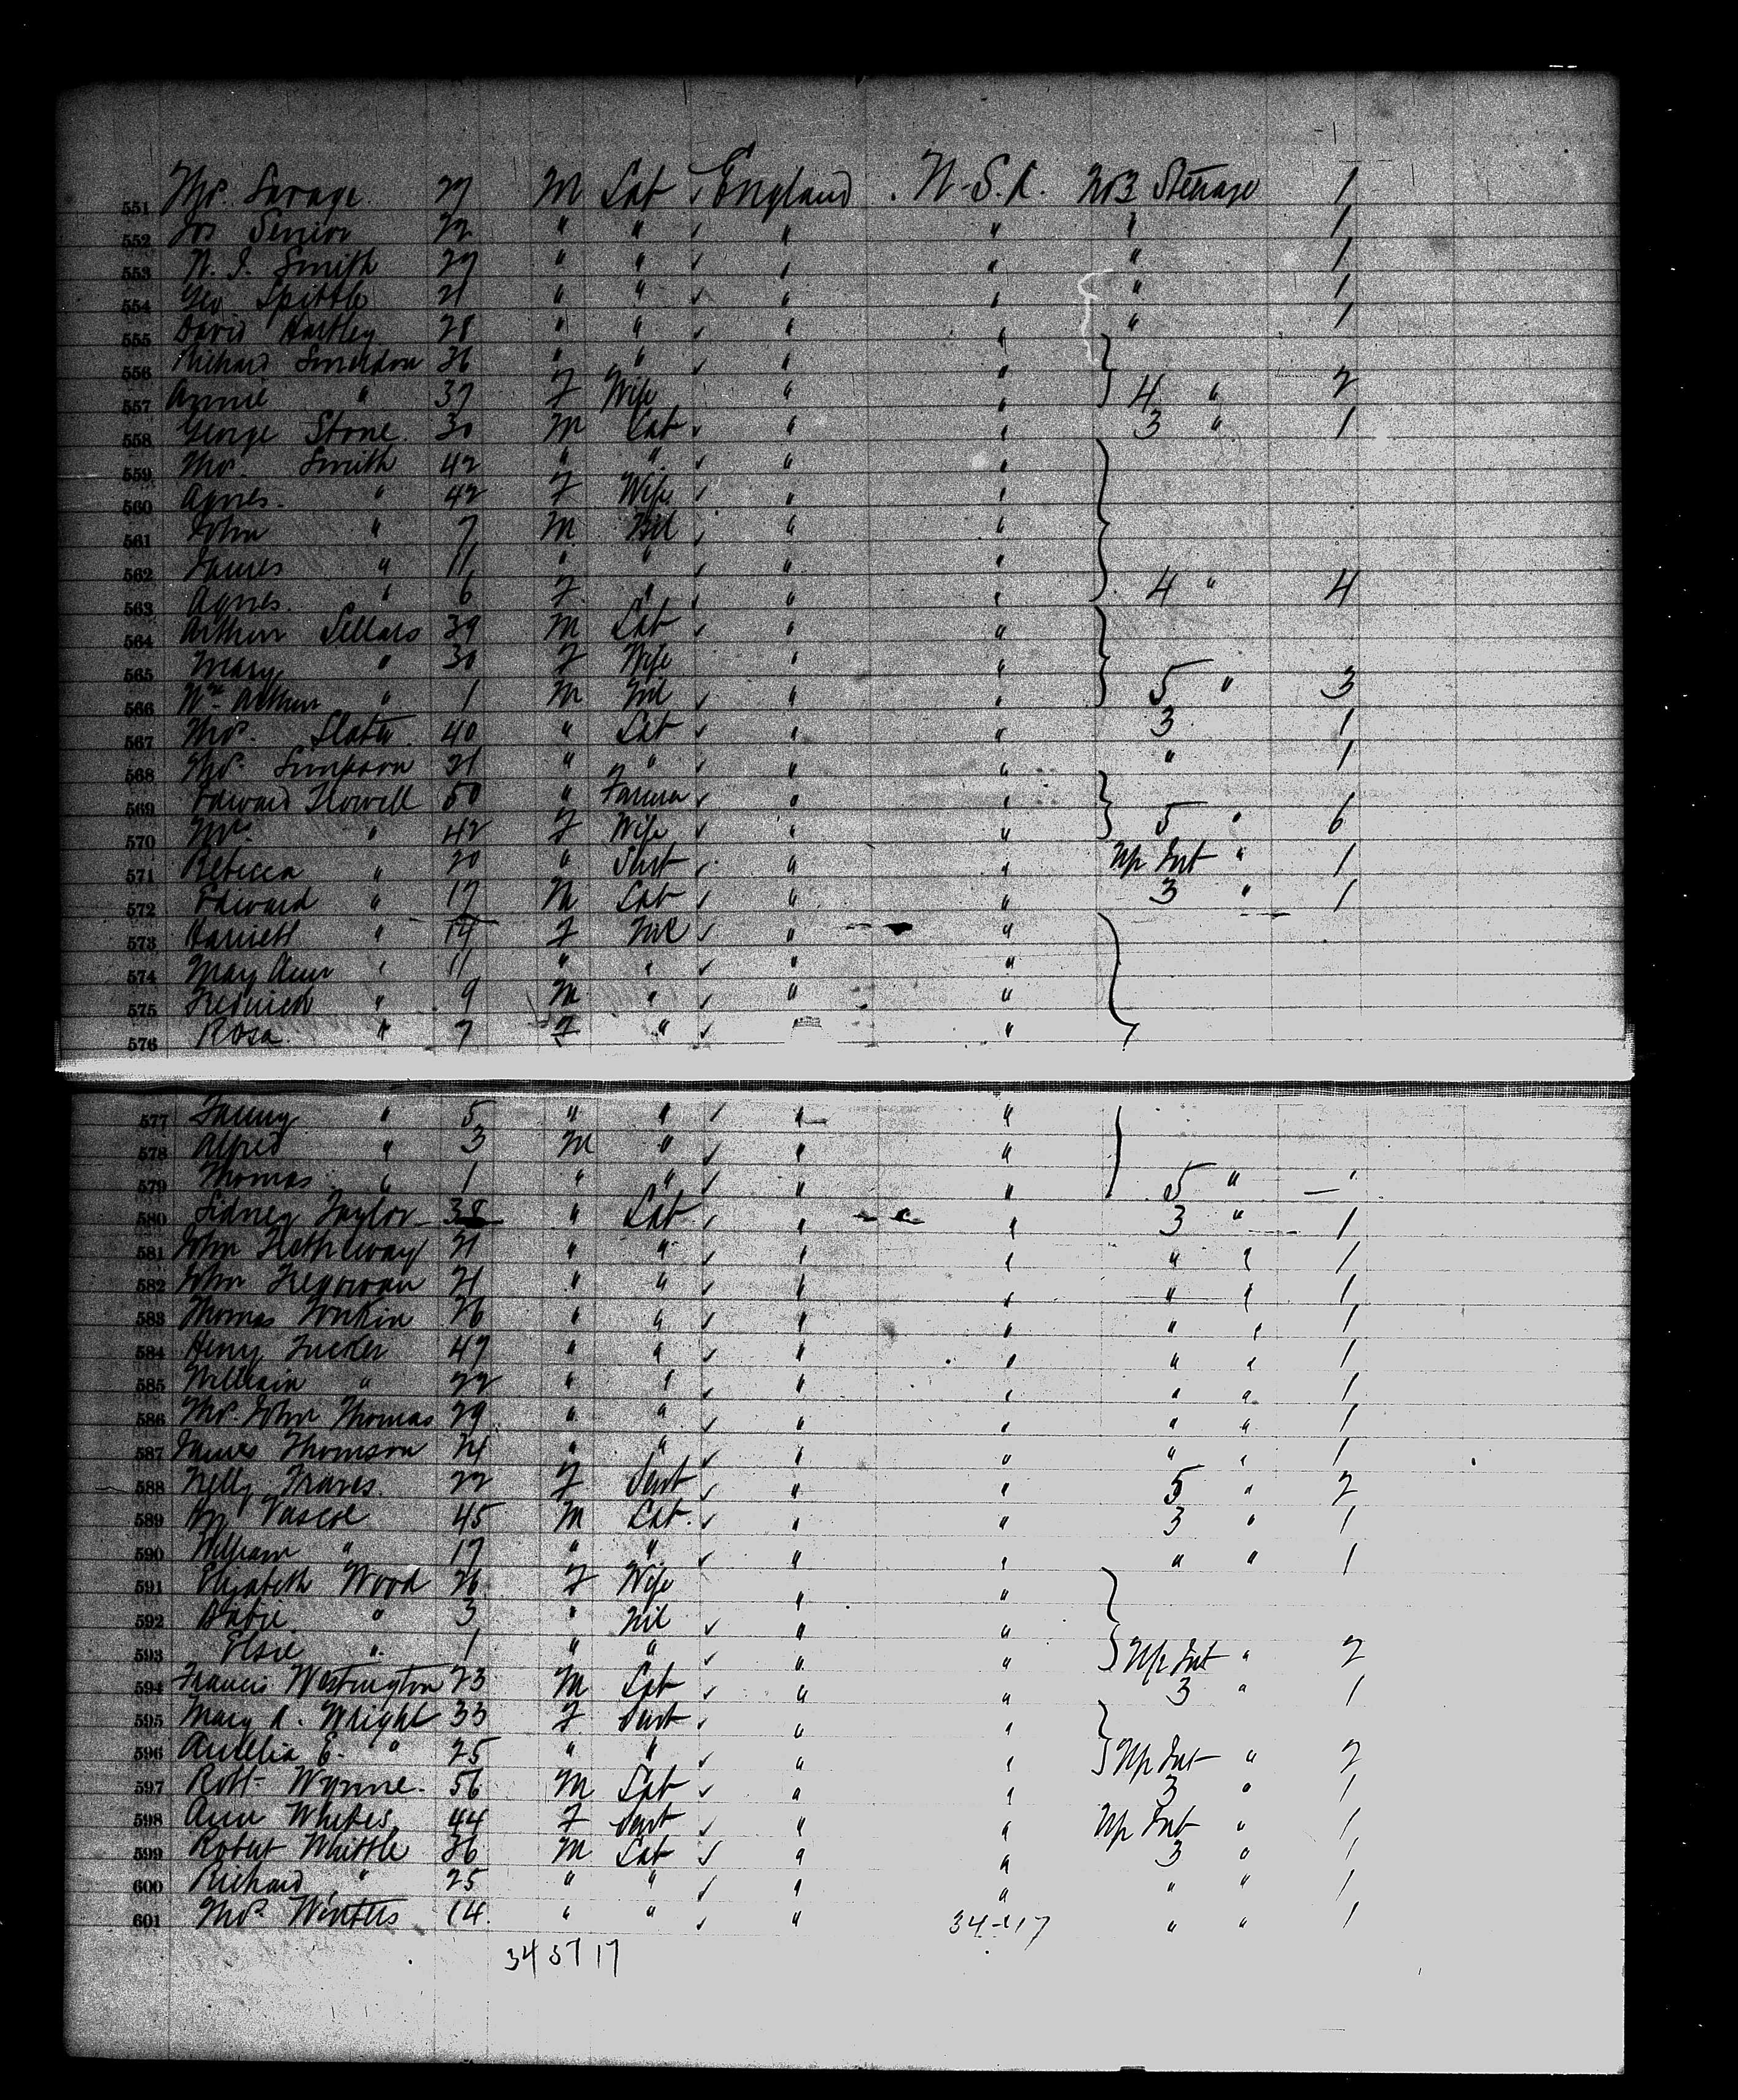 551 Thos. Savage. 27 M Lab ✓ England . U.S.A. No3 Steerage 1
552 Jos Senior 22 " " ✓ " " " 1
553 W. J. Smith 27 " " ✓ " " " 1
554 Geo Spittle 21 " " ✓ " " " 1
555 David Hartley 28 " " ✓ " " " 1
556 Richard Smeldon 36 " " ✓ " "
557 Annie " 37 F Wife " " 4 " 2
558 George Stone. 30 M Lab ✓ " " 3 " 1
559 Thos. Smith 42 " " ✓ " "
560 Agnes. " 42 F Wife ✓ " "
561 John " 7 M Nil ✓ " "
562 James " 11 " " ✓ " "
563 Agnes. " 6 F " ✓ " " 4 " 4
564 Arthur Sellars 39 M Lab ✓ " "
565 Mary " 30 F Wife " "
566 Wm Arthur " 1 M Nil ✓ " " 5 " 3
567 Thos. Slater 40 " Lab ✓ " " 3 1
568 Thos. Simpson 21 " " ✓ " " " 1
569 Edward Howell 50 " Farmer ✓ " "
570 Mrs. " 42 F Wife ✓ " " 5 " 6
571 Rebecca " 20 " Servt ✓ " " Up Int " 1
572 Edward " 17 M Lab ✓ " " 3 " 1
573 Harriett " 14 F Nil ✓ " "
574 Mary Ann " 11 " " ✓ " "
575 Fredrick " 9 M " ✓ " "
576 Rosa. " 7 F " ✓ "
577 Fanny " 5 " " ✓ " "
578 Alfred " 3 M " ✓ " "
579 Thomas " 1 " " ✓ " " 5 " —
580 Sidney Taylor 38 " Lab ✓ " " 3 " 1
581 John 21 " " ✓ " " " " 1
582 John 21 " " ✓ " " " " 1
583 Thomas Tonkin 26 " " ✓ " " " " 1
584 Henry Tucker 47 " " ✓ " " " " 1
585 William " 22 " " ✓ " " " " 1
586 Thos. John Thomas 29 " " ✓ " " " " 1
587 James Thomson 24 " " ✓ " " " " 1
588 Nelly Traves. 22 F Servt ✓ " " 5 " 2
589 Vascoe 45 M Lab. ✓ " " 3 " 1
590 William " 17 " " ✓ " " " " 1
591 Elizabeth Wood 26 F Wife " "
592 " 3 " Nil ✓ " "
593 Elsie " 1 " " ✓ " " Up Int " 2
594 Francis Westington 23 M Lab ✓ " " 3 " 1
595 Mary A. Wright 33 F Servt ✓ " "
596 Amelia E. " 25 " " ✓ " " Up Int " 2
597 Robt Wynne. 56 M Lab ✓ " " 3 " 1
598 Ann Whites 44 F Servt ✓ " " Up Int " 1
599 Robert Whittle 36 M Lab ✓ " " 3 " 1
600 Richard " 25 " " ✓ " " " " 1
601 Thos. Winters 14. " " ✓ " " " 1